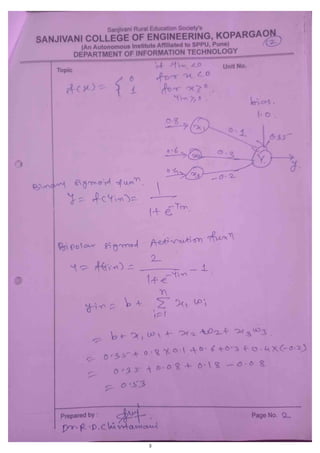 Sanjivani Rural Education Society's
SANJIVANI COLLEGE OF ENGINEERING, KOPARGAON
(An Autonomous Institute Affiliated to SPPU, Pune)
DEPARTMENT OF INFORMATION TECHNOLOGY
2
Topic
Unit No.
if Yin<0
f(x) = { 0 for x<0
1 for x≥0
Yin≥0
bias
1.0
0.8 x1 0.1 0.35
0.6 x2 0.3 Y y
0.4 x3 -0.2
Binary sigmoid funn
y = f(yin) = 1
1+e-Yin
Bipolar sigmod Activation funn
Y = f(yin) = 2 - 1
1+e-Yin
n
yin = b + Σ xi wi
i=1
= b + x1 w1 + x2 w2 + x3 w3
= 0.35 + 0.8 x 0.1 + 0.6 x 0.3 + 0.4 x (-0.2)
= 0.35 + 0.08 + 0.18 - 0.08
= 0.53
Prepared by :
Page No. 2
Dr. R.D. Chintamani